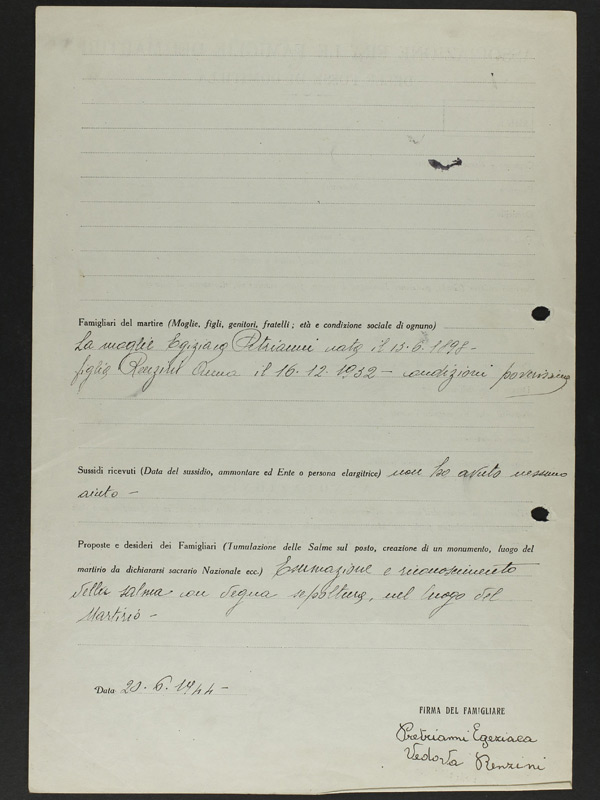 Famigliari del martire (Moglie, figli, genitori, fratelli ; età e condizione sociale di ognuno)
La moglie Egiziaca Petrianni nata il 15.6.1898 -
figlia Renzini Anna il 16.12.1932 - condizioni poverissime
Sussidi ricevuti (Data del sussidio, ammontare ed Ente o persona elargitrice) non ho avuto nessuno
aiuto -
Proposte e desideri dei Famigliari (Tumulazione delle Salme sul posto, creazione di un monumento, luogo del
martirio da dichiararsi sacrario Nazionale ecc.) Esumazione e riconoscimento
della salma con degna sepoltura, nel luogo del
Martirio -
Data 20.6.1944 -
FIRMA DEL FAMIGLIARE
Pretrianni Egeziaca
Vedova Renzini